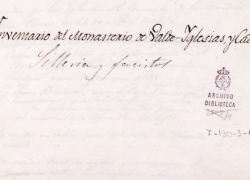 nventario del Monasterio de Valde-Iglesias, y Cá
Sillería y facistol
ARCHIVO
BIBLIOTECA
7-130-3-